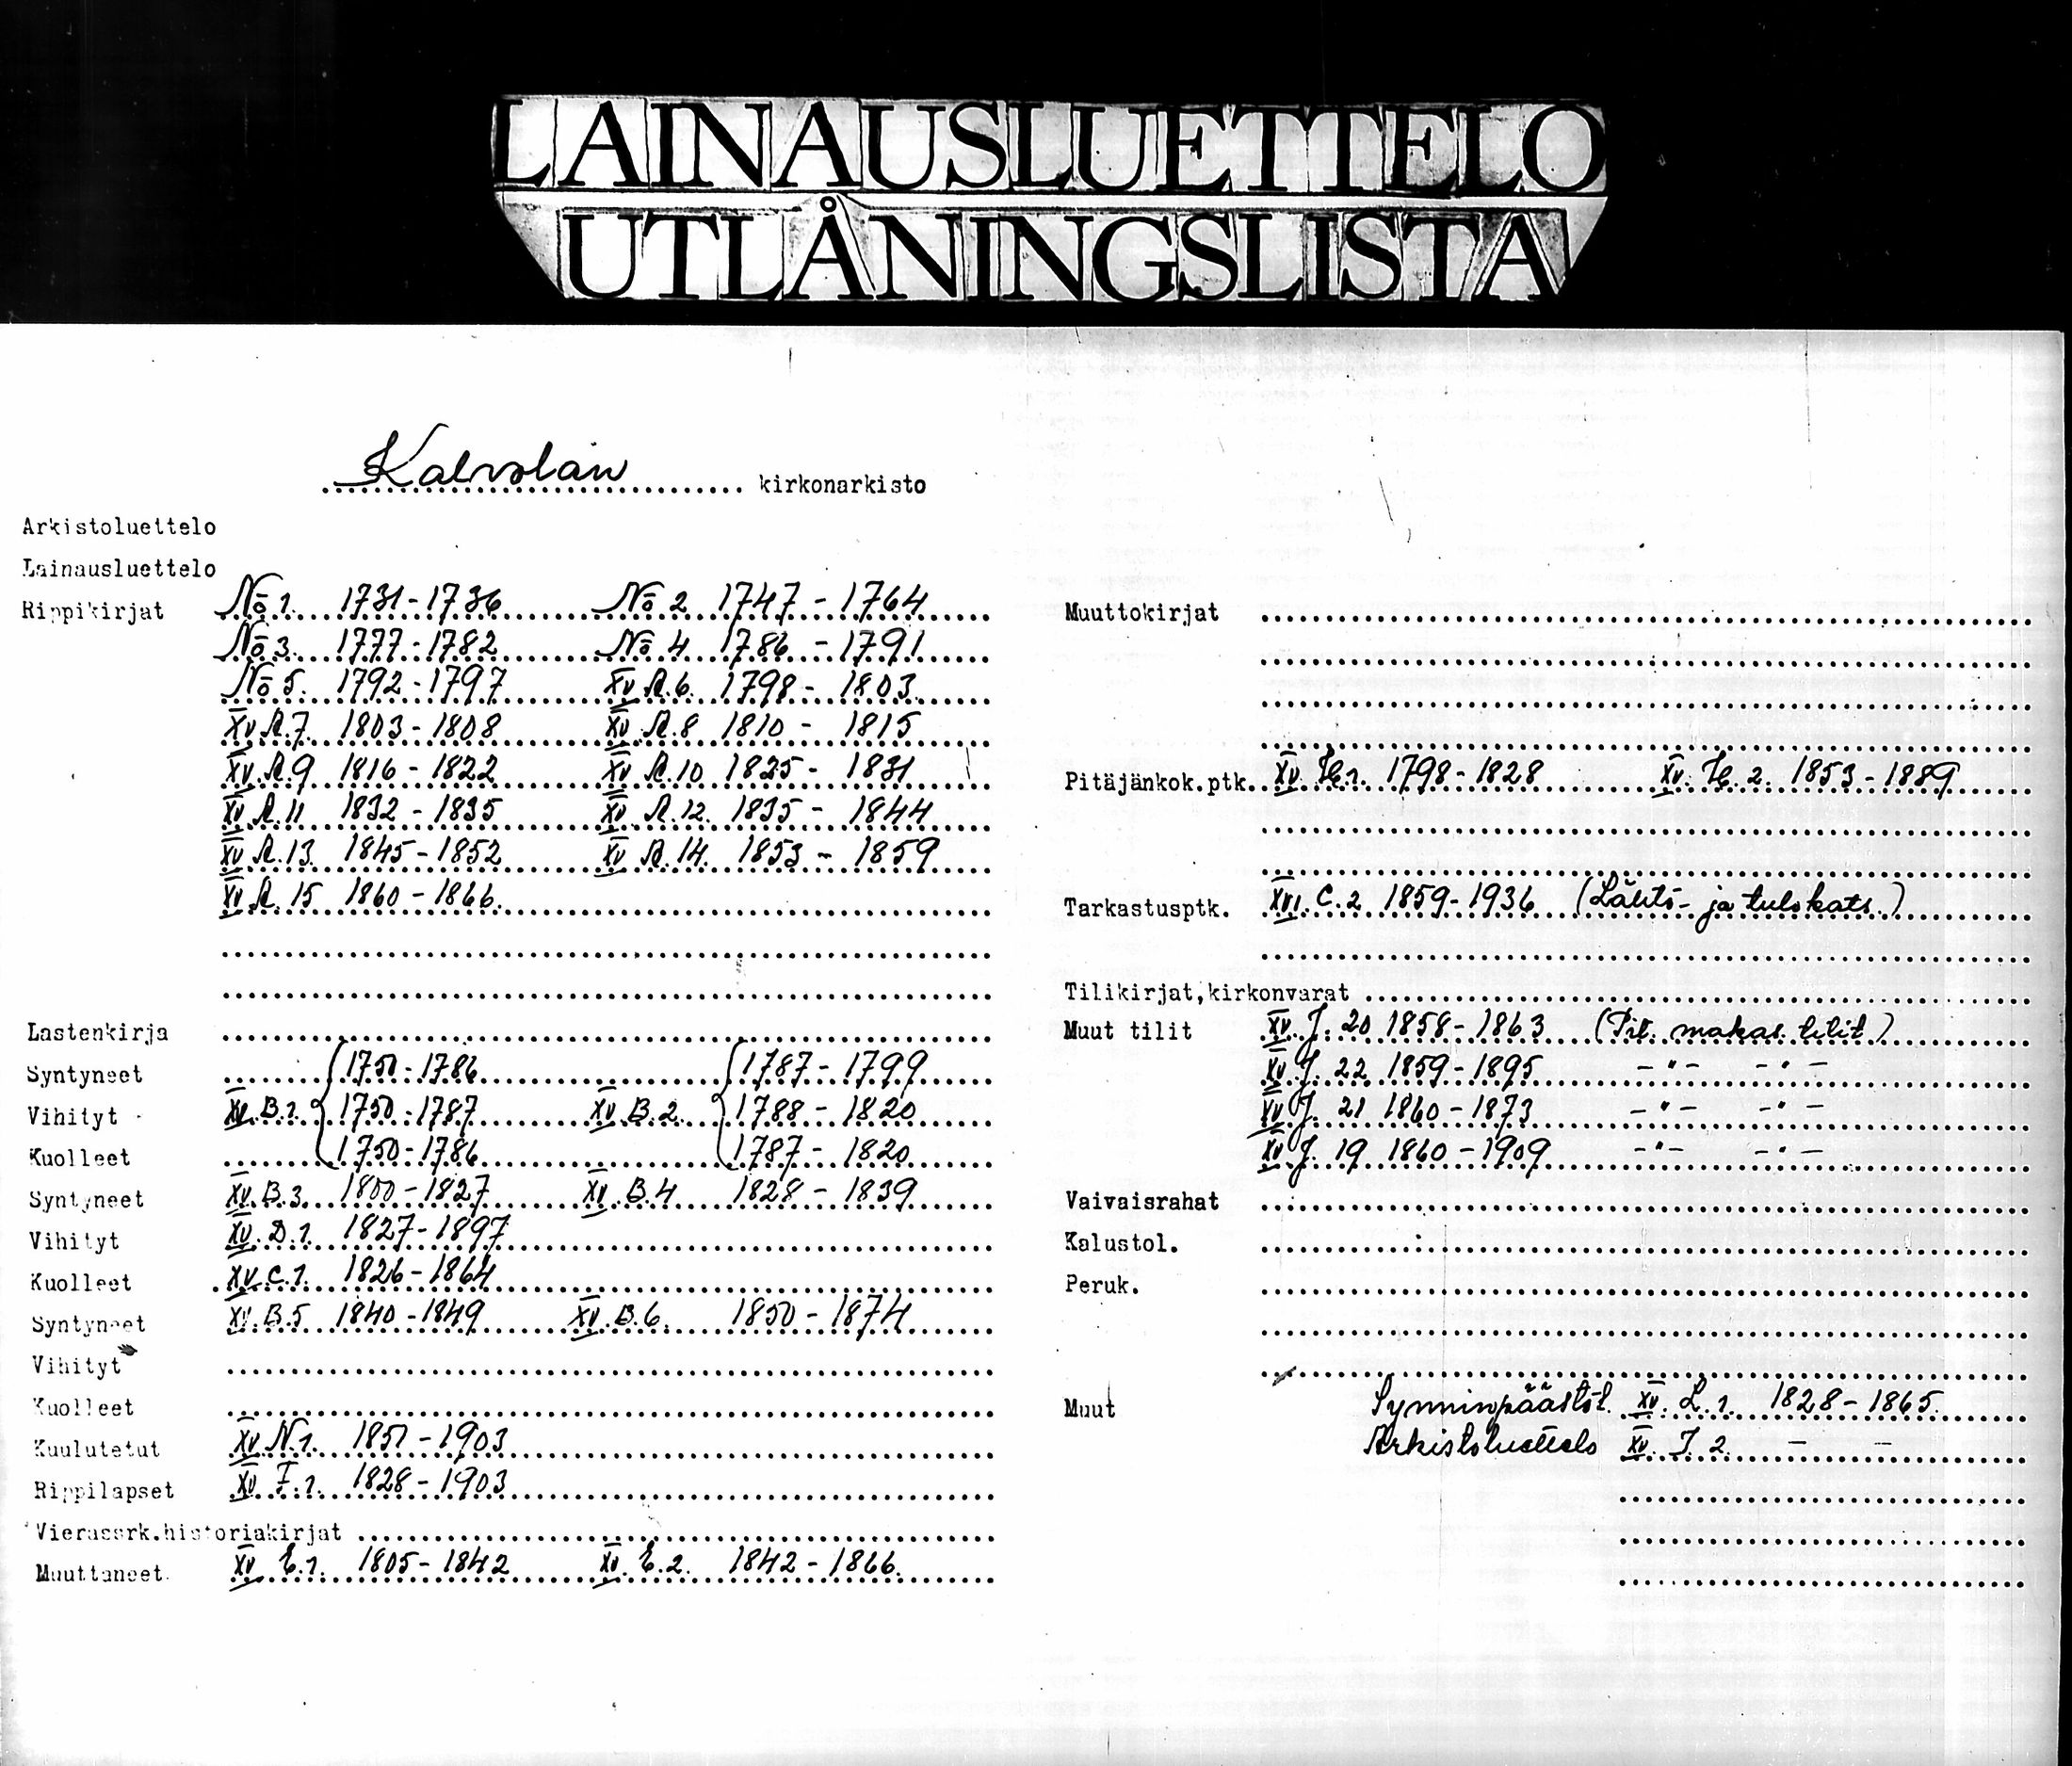 LAINAUSLUETTELO
UTLÅNINGSLISTA
Kalvolan kirkonarkisto
Arkistoluettelo
Lainausluettelo
Rippikirjat No 1. 1731-1736 No 2 1747-1764
No 3. 1777-1782 No 4 1786-1791
No 5. 1792-1797 XV A.6. 1798-1803.
XV A.7. 1803-1808 XV A.8 1810-1815
XV. A.9 1816-1822 XV A.10 1825-1831
XV A.11 1832-1835 XV A.12. 1835-1844
XV A.13. 1845-1852 XV A.14. 1853-1859
XV A. 15 1860-1866.
Lastenkirja
Syntyneet 1750-1786 1787-1799
Vihityt XV. B.1. 1750-1787 XV. B.2. 1788-1820
Kuolleet 1750-1786 1787-1820
Syntyneet XV. B.3. 1800-1827 XV. B.4 1828-1839
Vihityt XV. D.1. 1827-1897
Kuolleet XV. C.1. 1826-1864
Syntyneet XV. B.5 1840-1849 XV. B.6. 1850-1874
Vihityt
Kuolleet
Kuulutetut XV N.1. 1851-1903
Rippilapset XV I.1. 1828-1903
Vierassrk.historiakirjat
Muuttaneet. XV. E.1. 1805-1842 XV. E.2. 1842-1866.
Muuttokirjat
Pitäjänkok.ptk. XV 1. 1798-1828 XV. 2. 1853-1889
Tarkastusptk. XVI. C.2 1859-1936 (Lähtö- ja tulokats.)
Tilikirjat,kirkonvarat
Muut tilit XV. J. 20 1858-1863 (Pit. makas. tilit)
XV J. 22 1859-1895 -"- -"-
XV J. 21 1860-1873 -"- -"-
XV J. 19 1860-1909 -"- -"-
Vaivaisrahat
Kalustol.
Peruk.
Muut Synninpäästöt. XV. L.1. 1828-1865.
Arkistoluettelo XV. J. 2. - -